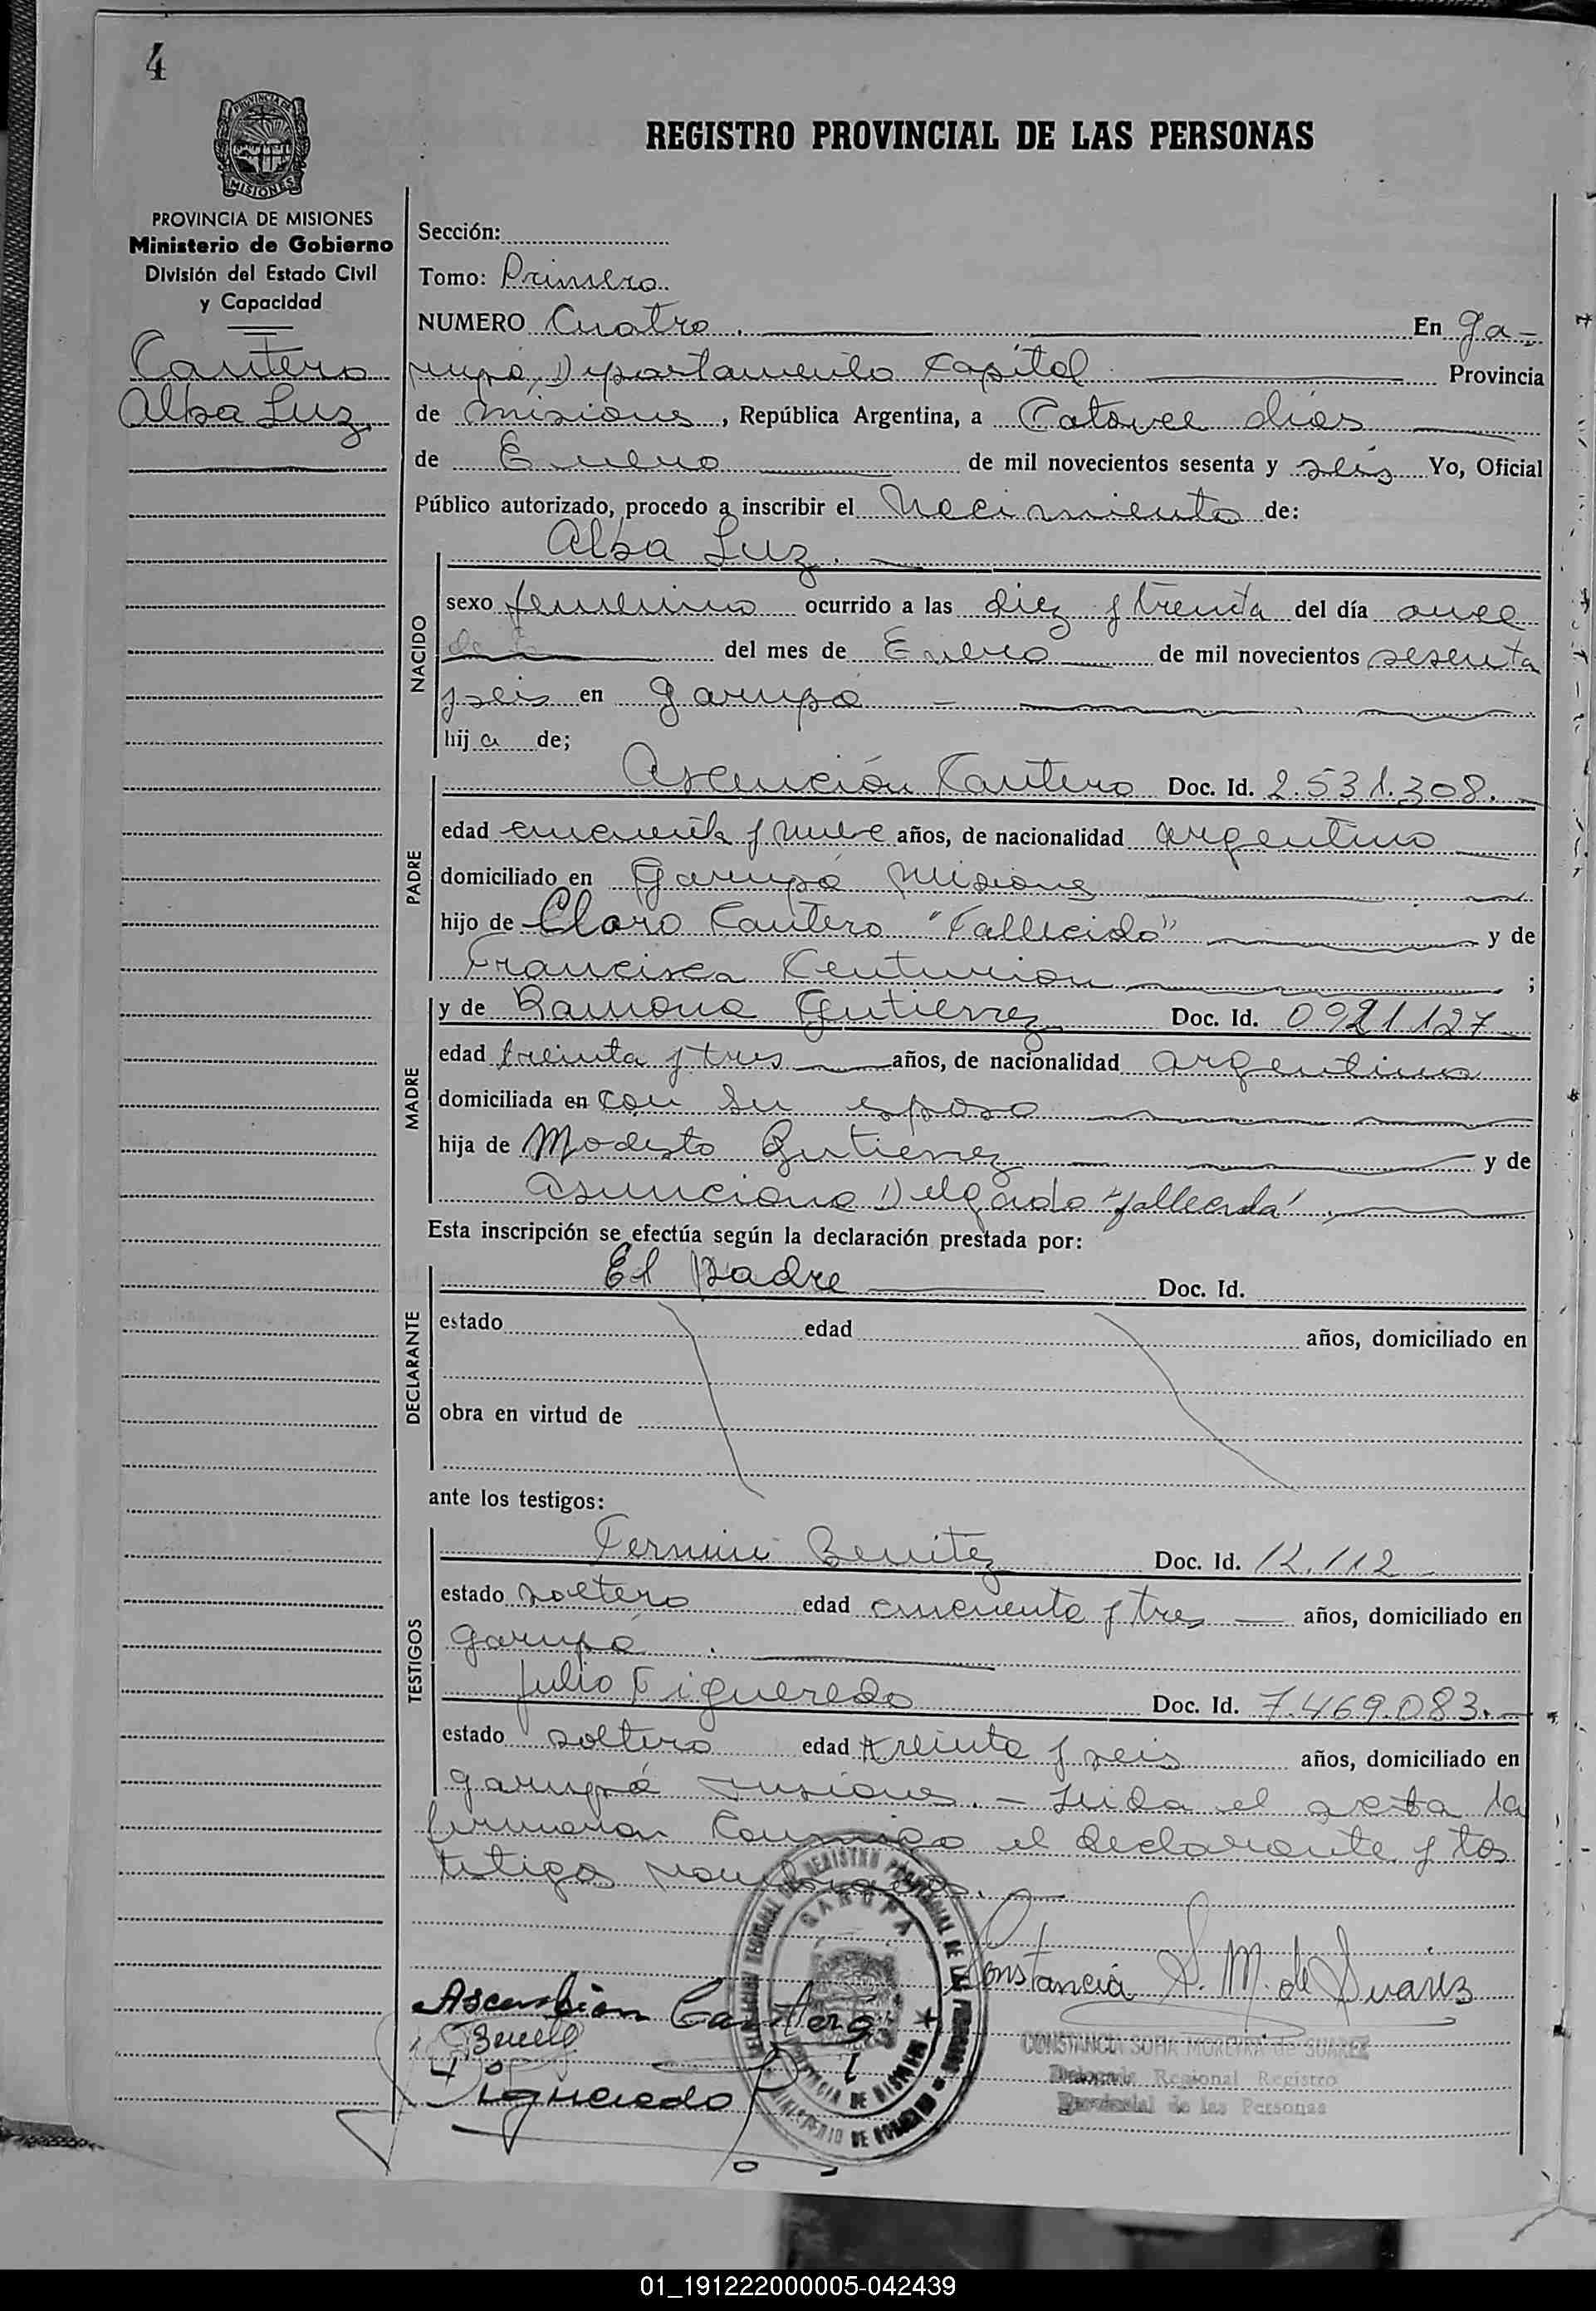 4
PROVINCIA DE
MISIONES
REGISTRO PROVINCIAL DE LAS PERSONAS
PROVINCIA DE MISIONES
Ministerio de Gobierno
División del Estado Civil
y Capacidad
Cantero
Alba Luz
Sección:
Tomo: Primero
NUMERO Cuatro. En Ga-
rupá, Departamento Capital Provincia
de Misiones, República Argentina, a Catorce días
de Enero de mil novecientos sesenta y seis Yo, Oficial
Público autorizado, procedo a inscribir el Nacimiento de:
Alba Luz.
NACIDO
sexo femenino ocurrido a las diez y treinta del día once
del mes de Enero de mil novecientos sesenta
y seis en Garupá
hija de;
PADRE
Asención Cantero Doc. Id. 2.531.308.
edad cincuenta y nueve años, de nacionalidad argentino
domiciliado en Garupá Misiones
hijo de Claro Cantero "Fallecido" y de
Francisca Centurion ;
MADRE
y de Ramona Gutierrez Doc. Id. 0921.127
edad treinta y tres años, de nacionalidad argentina
domiciliada en con su esposo
hija de Modesto Gutierrez y de
Asunciona Delgado "fallecida".
Esta inscripción se efectúa según la declaración prestada por:
DECLARANTE
El padre Doc. Id.
estado edad años, domiciliado en
obra en virtud de
ante los testigos:
TESTIGOS
Fermin Benitez Doc. Id. 12.112
estado soltero edad cincuenta y tres años, domiciliado en
Garupá.
Julio Figueredo Doc. Id. 7.469.083.-
estado soltero edad treinta y seis años, domiciliado en
Garupá Misiones. - Leida el acta la
firmaron conmigo el declarante y los
testigos nombrados.
DELEGACION REGIONAL DEL REGISTRO PROVINCIAL DE LAS PERSONAS
GARUPA
PROVINCIA DE MISIONES
MINISTERIO DE GOBIERNO
Constancia S. M. de Suarez
Ascension Cantero
CONSTANCIA SOFIA MOREYRA de SUAREZ
F Benite
Delegada Regional Registro
Figueredo
Provincial de las Personas
01_191222000005-042439